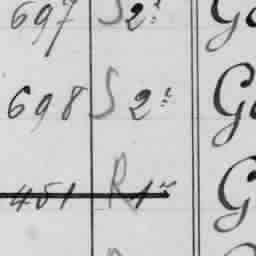 697 S 2.
698 S 2.
451 R 1